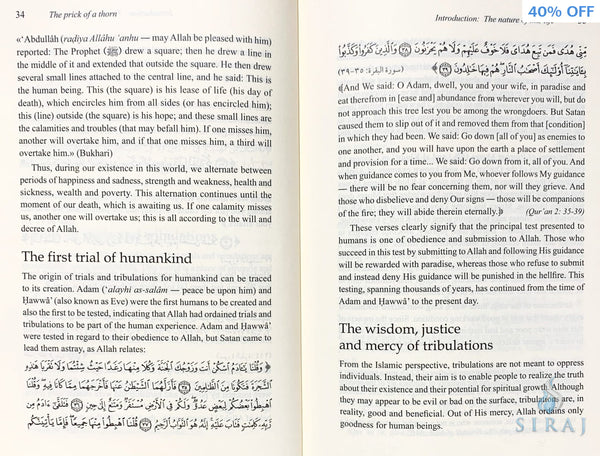 34 The prick of a thorn
«'Abdullâh (raḍiya Allâhu 'anhu — may Allah be pleased with him)
reported: The Prophet (ﷺ) drew a square; then he drew a line in
the middle of it and extended that outside the square. He then drew
several small lines attached to the central line, and he said: This is
the human being. This (the square) is his lease of life (his day of
death), which encircles him from all sides (or has encircled him);
this (line) outside (the square) is his hope; and these small lines are
the calamities and troubles (that may befall him). If one misses him,
another will overtake him, and if that one misses him, a third will
overtake him.» (Bukhari)
Thus, during our existence in this world, we alternate between
periods of happiness and sadness, strength and weakness, health and
sickness, wealth and poverty. This alternation continues until the
moment of our death, which is awaiting us. If one calamity misses
us, another one will overtake us; this is all according to the will and
decree of Allah.
The first trial of humankind
The origin of trials and tribulations for humankind can be traced
to its creation. Adam ('alayhi as-salâm — peace be upon him) and
Ḥawwâ' (also known as Eve) were the first humans to be created and
also the first to be tested, indicating that Allah had ordained trials and
tribulations to be part of the human experience. Adam and Ḥawwâ'
were tested in regard to their obedience to Allah, but Satan came to
lead them astray, as Allah relates:
﴿ وَقُلْنَا يَٰٓـَٔادَمُ ٱسْكُنْ أَنتَ وَزَوْجُكَ ٱلْجَنَّةَ وَكُلَا مِنْهَا رَغَدًا حَيْثُ شِئْتُمَا وَلَا تَقْرَبَا هَٰذِهِ
ٱلشَّجَرَةَ فَتَكُونَا مِنَ ٱلظَّٰلِمِينَ ۝٣٥ فَأَزَلَّهُمَا ٱلشَّيْطَٰنُ عَنْهَا فَأَخْرَجَهُمَا مِمَّا كَانَا فِيهِ وَقُلْنَا
ٱهْبِطُوا۟ بَعْضُكُمْ لِبَعْضٍ عَدُوٌّ وَلَكُمْ فِى ٱلْأَرْضِ مُسْتَقَرٌّ وَمَتَٰعٌ إِلَىٰ حِينٍ ۝٣٦ فَتَلَقَّىٰٓ ءَادَمُ مِن
رَّبِّهِۦ كَلِمَٰتٍ فَتَابَ عَلَيْهِ إِنَّهُۥ هُوَ ٱلتَّوَّابُ ٱلرَّحِيمُ ۝٣٧ قُلْنَا ٱهْبِطُوا۟ مِنْهَا جَمِيعًا فَإِمَّا يَأْتِيَنَّكُم
40% OFF
Introduction: The nature of
مِّنِّى هُدًى فَمَن تَبِعَ هُدَاىَ فَلَا خَوْفٌ عَلَيْهِمْ وَلَا هُمْ يَحْزَنُونَ ۝٣٨ وَٱلَّذِينَ كَفَرُوا۟ وَكَذَّبُوا۟
بِـَٔايَٰتِنَآ أُو۟لَٰٓئِكَ أَصْحَٰبُ ٱلنَّارِ هُمْ فِيهَا خَٰلِدُونَ ۝٣٩ ﴾ (سورة البقرة: ٣٥-٣٩)
﴾And We said: O Adam, dwell, you and your wife, in paradise and
eat therefrom in [ease and] abundance from wherever you will, but do
not approach this tree lest you be among the wrongdoers. But Satan
caused them to slip out of it and removed them from that [condition]
in which they had been. We said: Go down [all of you] as enemies to
one another, and you will have upon the earth a place of settlement
and provision for a time... We said: Go down from it, all of you. And
when guidance comes to you from Me, whoever follows My guidance
— there will be no fear concerning them, nor will they grieve. And
those who disbelieve and deny Our signs — those will be companions
of the fire; they will abide therein eternally.﴿ (Qur'an 2: 35-39)
These verses clearly signify that the principal test presented to
humans is one of obedience and submission to Allah. Those who
succeed in this test by submitting to Allah and following His guidance
will be rewarded with paradise, whereas those who refuse to submit
and instead deny His guidance will be punished in the hellfire. This
testing, spanning thousands of years, has continued from the time of
Adam and Ḥawwâ' to the present day.
The wisdom, justice
and mercy of tribulations
From the Islamic perspective, tribulations are not meant to oppress
individuals. Instead, their aim is to enable people to realize the truth
about their existence and their potential for spiritual growth. Although
they may appear to be evil or bad on the surface, tribulations are, in
reality, good and beneficial. Out of His mercy, Allah ordains only
goodness for human beings.
SIRAJ